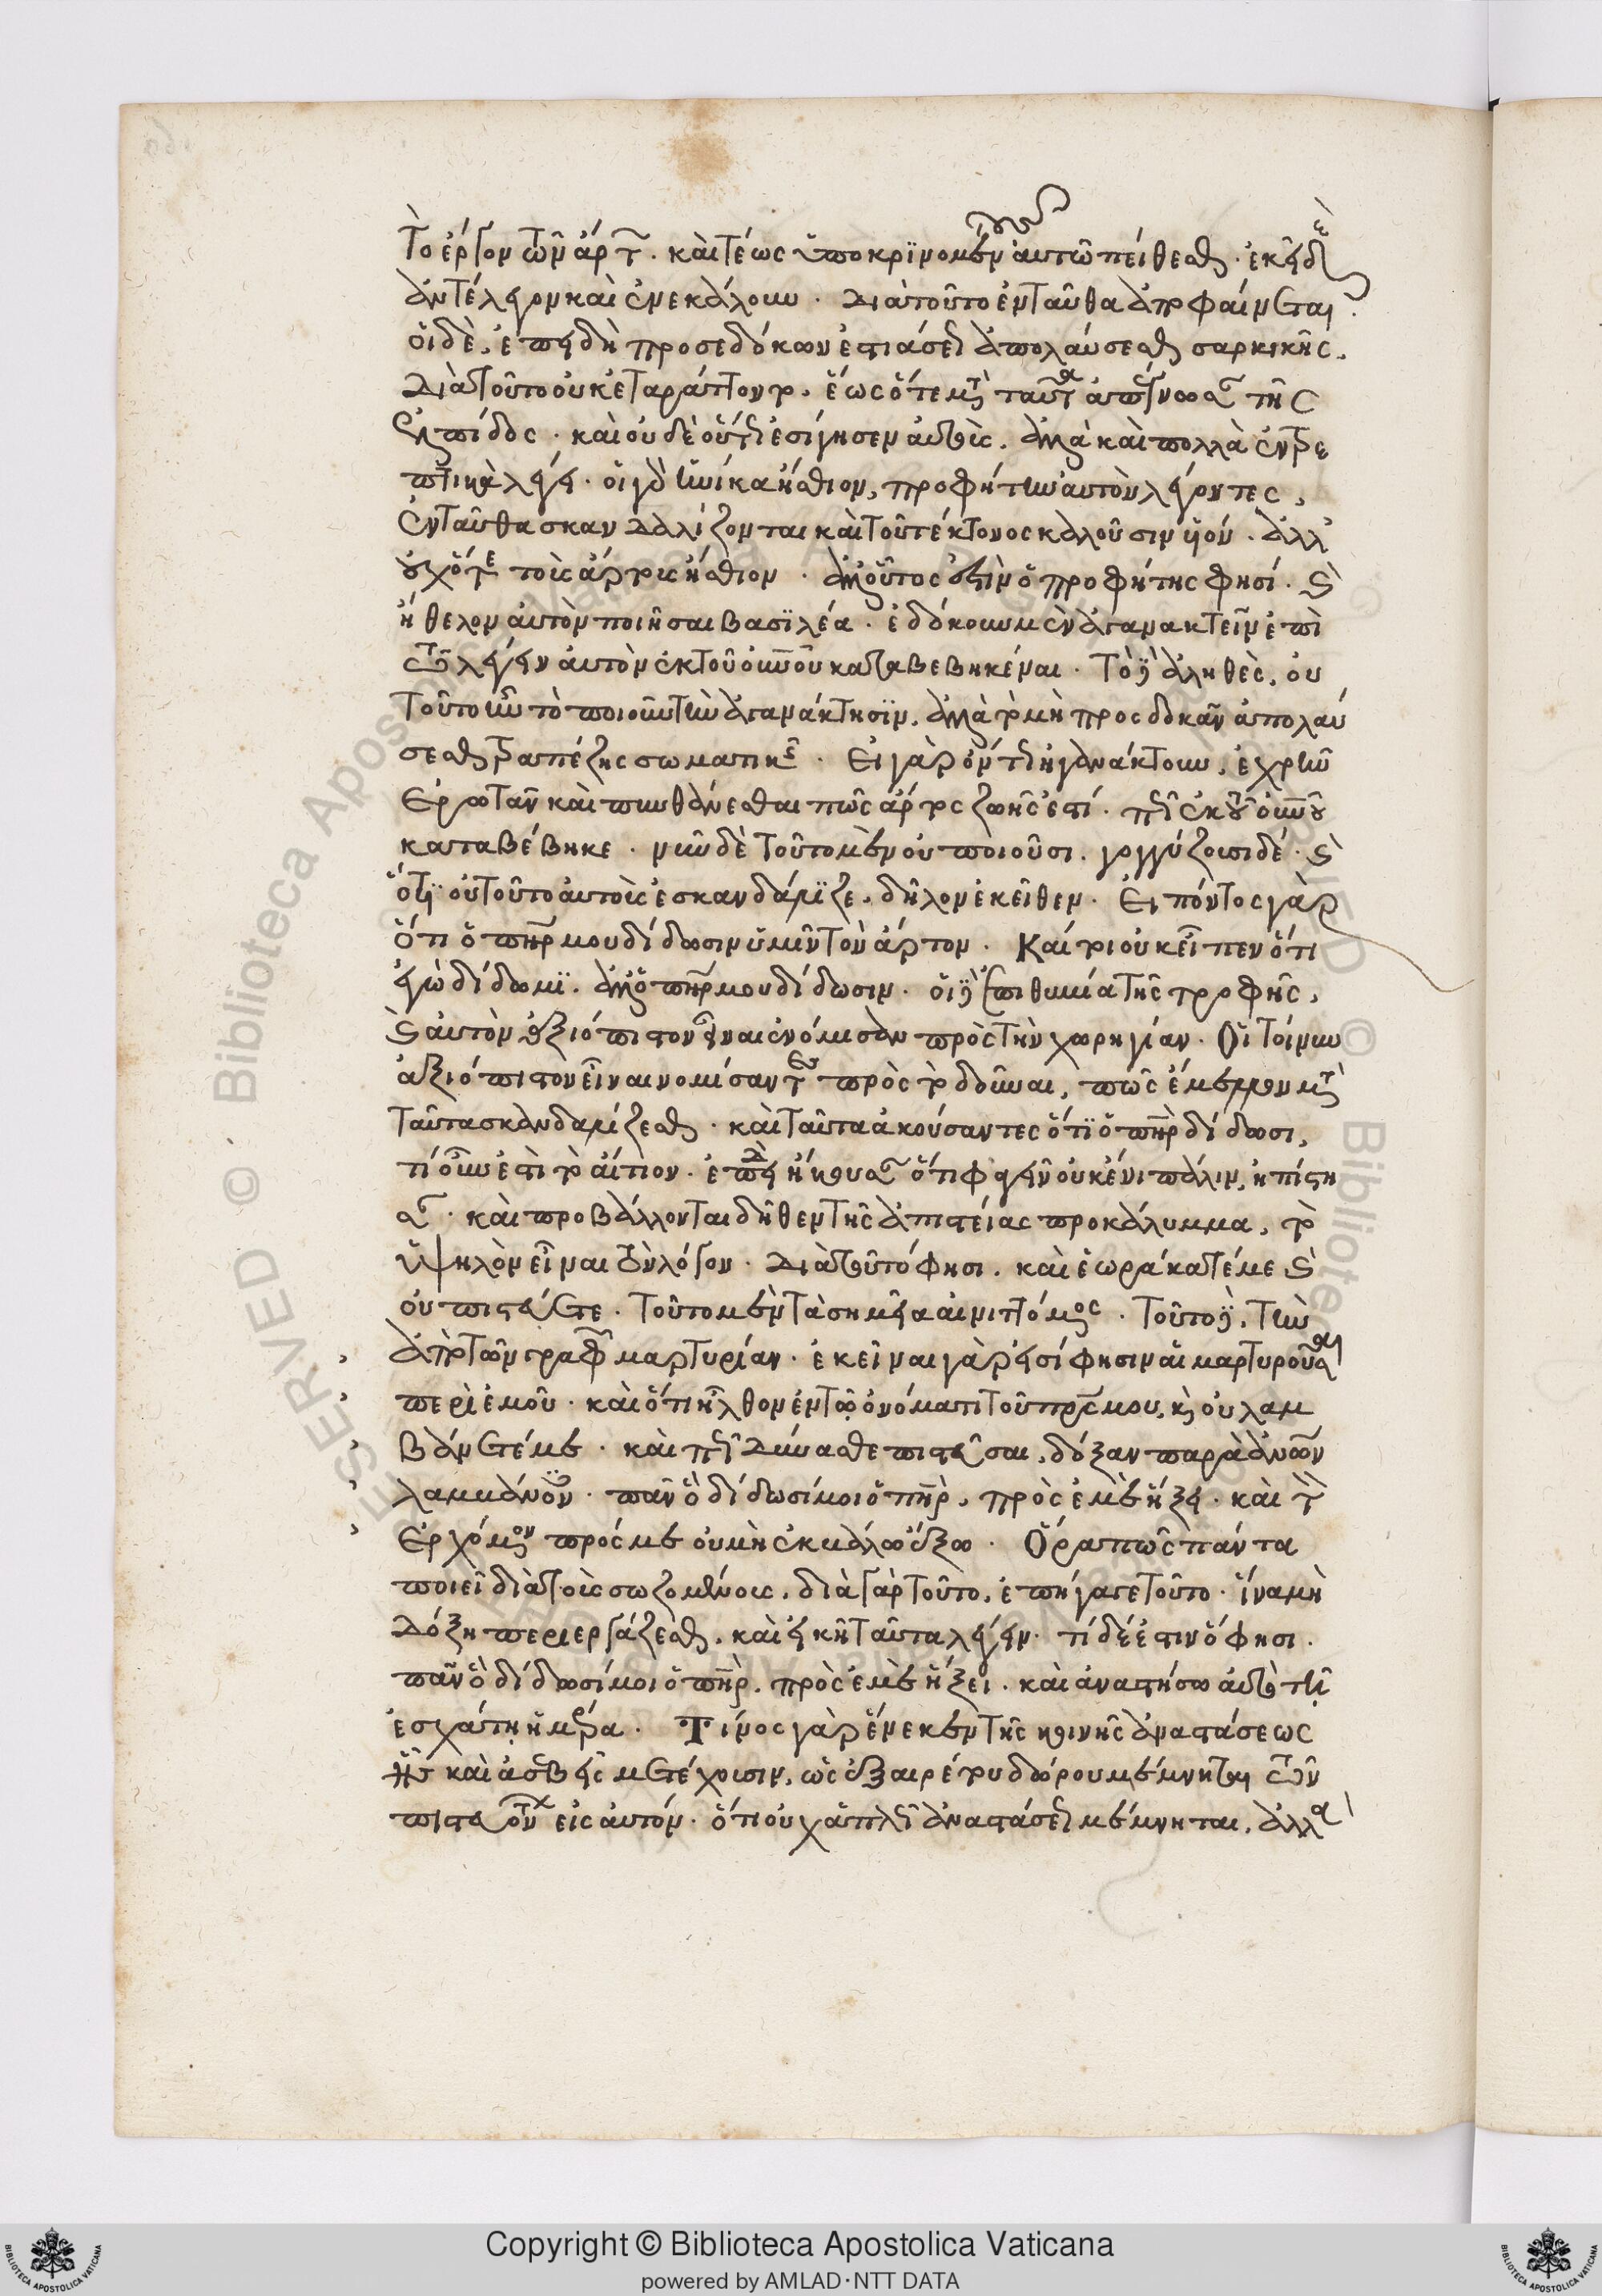 Το ἔργον τῶν ἄρτων. καὶ τέως ὑποκρινομένων αὐτῶ πείθεσθαι. ἐκεῖ δὲ
ἀντέλεγον καὶ ἐνεκάλουν. Διὰ τοῦτο ἐνταῦθα ἀποφαίνεται
οἱ δὲ, ἐπειδὴ προσεδόκων ἔτι ἀπολαύσεσθαι σαρκικῆς.
Διὰ τοῦτο οὐκ ἐταράττοντο. ἕως ὅτε μετὰ ταῦτα ἀπέγνωσαν τῆς
ἐλπίδος. καὶ οὐδὲ οὕτως ἐσίγησεν αὐτοὺς. ἀλλὰ καὶ πολλὰ ἐντρε
πτικὰ λέγει. οἱ γὰρ ἡνίκα ἤσθιον, προφήτην αὐτὸν λέγοντες,
Ἐνταῦθα σκανδαλίζονται καὶ τοῦ τέκτονος καλοῦσιν υἱόν. ἀλλ'
οὐχ ὅτε τοὺς ἄρτους ἤσθιον. ἀλλ' οὗτος ἐστὶν ὁ προφήτης φησί. καὶ
ἤθελον αὐτὸν ποιῆσαι βασιλέα. ἐδόκουν μὲν ἀγανακτεῖν ἐπὶ
τῶ λέγειν αὐτὸν ἐκ τοῦ οὐνοῦ καταβεβηκέναι. Τὸ δὲ ἀληθὲς, οὐ
τοῦτο ἦν τὸ ποιοῦν τὴν ἀγανάκτησιν, ἀλλὰ τὸ μὴ προσδοκᾶν ἀπολαύ
σεσθαι τραπέζης σωματικῆς. Εἰ γὰρ ὄντως ἠγανάκτουν, ἐχρῆν
Ἐρωτᾶν καὶ πυνθάνεσθαι πῶς ἄρτος ζωῆς ἐστί. πῶς ἐκ τοῦ οὐνοῦ
καταβέβηκε. νῦν δὲ τοῦτο μὲν οὐ ποιοῦσι. γογγύζουσι δέ. καὶ
ὅτι οὐ τοῦτο αὐτοὺς ἐσκανδάλιζε, δῆλον ἐκεῖθεν. Εἰπόντος γὰρ
ὅτι ὁ πὴρ μου δίδωσιν ὑμῖν τὸν ἄρτον. Καίτοι οὐκ εἶπεν ὅτι
ἐγὼ δίδωμι. ἀλλ' ὁ πὴρ μου δίδωσιν. οἱ δὲ ἐπιθυμία τῆς τροφῆς,
καὶ αὐτὸν ἀξιόπιστον εἶναι ἐνόμισαν πρὸς τὴν χορηγίαν. Οἱ τοίνυν
ἀξιόπιστον εἶναι νομίσαντες πρὸς τὸ δοῦναι, πῶς ἔμελλον μετὰ
ταῦτα σκανδαλίζεσθαι. καὶ ταῦτα ἀκούσαντες ὅτι ὁ πὴρ δίδωσι,
τί οὖν ἐστι τὸ αἴτιον. ἐπειδὴ ἤκουσαν ὅτι φαγεῖν οὐκ ἔνι πάλιν, ἠπίστη
σαν. καὶ προβάλλονται δῆθεν τῆς ἀπιστείας προκάλυμμα, τὸ
ὑψηλὸν εἶναι τὸν λόγον. Διὰ τοῦτό φησι. καὶ ἑωράκατέ με καὶ
οὐ πιστεύετε. Τοῦτο μὲν τὰ σημεῖα αἰνιττόμενος. Τοῦτο δὲ, τὴν
ἀπὸ τῶν γραφῶν μαρτυρίαν. ἐκεῖναι γὰρ εἰσί φησιν αἱ μαρτυροῦσαι
περὶ ἐμοῦ. καὶ ὅτι ἦλθον ἐν τῶ ὀνόματι τοῦ πρς μου, καὶ οὐ λαμ
βάνετέ με. καὶ πῶς δύνασθε πιστεῦσαι, δόξαν παρὰ ἀνων
λαμβάνοντες. πᾶν ὃ δίδωσί μοι ὁ πὴρ, πρὸς ἐμὲ ἥξει. καὶ τὸν
Ἐρχόμενον πρός με οὐ μὴ ἐκβάλω ἔξω. Ὅρα πῶς πάντα
ποιεῖ διὰ τοὺς σωζομένους. διὰ γὰρ τοῦτο, ἐπήγαγε τοῦτο. ἵνα μὴ
Δόξη περιεργάζεσθαι, καὶ εἰκῆ ταῦτα λέγειν. τί δέ ἐστιν ὅ φησι.
πᾶν ὃ δίδωσί μοι ὁ πὴρ, πρὸς ἐμὲ ἥξει. καὶ ἀναστήσω αὐτὸ τῇ
ἐσχάτῃ ἡμέρα. Τίνος γὰρ ἕνεκεν τῆς κοινῆς ἀναστάσεως
ἧς καὶ ἀσεβεῖς μετέχουσιν, ὡς ἐξαιρέτου δώρου μέμνηται τῶν
πιστευόντων εἰς αὐτόν. ὅτι οὐχ ἁπλῶς ἀναστάσεως μέμνηται, ἀλλὰ
Copyright © Biblioteca Apostolica Vaticana
powered by AMLAD·NTT DATA